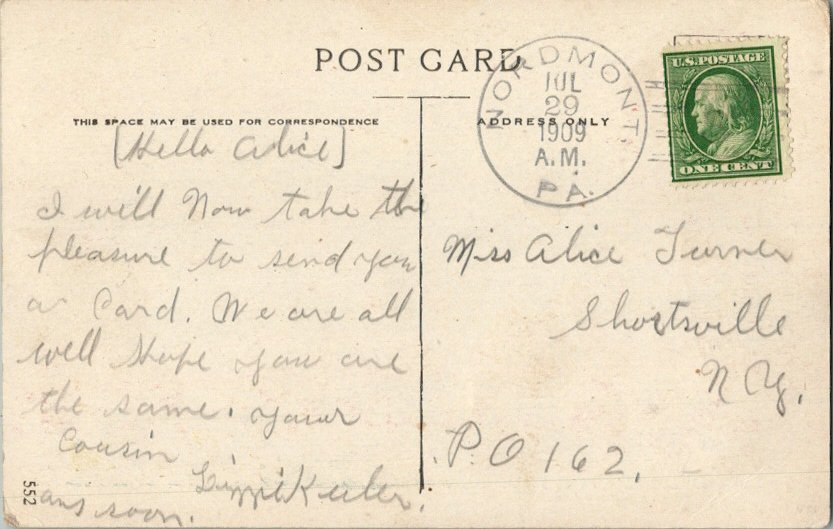 POST CARD
THIS SPACE MAY BE USED FOR CORRESPONDENCE
ADDRESS ONLY
NORDMONT.
JUL
29
1909
A.M.
PA.
U.S. POSTAGE
ONE CENT
[Hello Alice]
I will Now take the
pleasure to send you
a Card. We are all
well Hope you are
the same. your
Cousin
Lizzie
ans soon.
Miss Alice Turner
Shortsville
N Y.
P O 162.
552